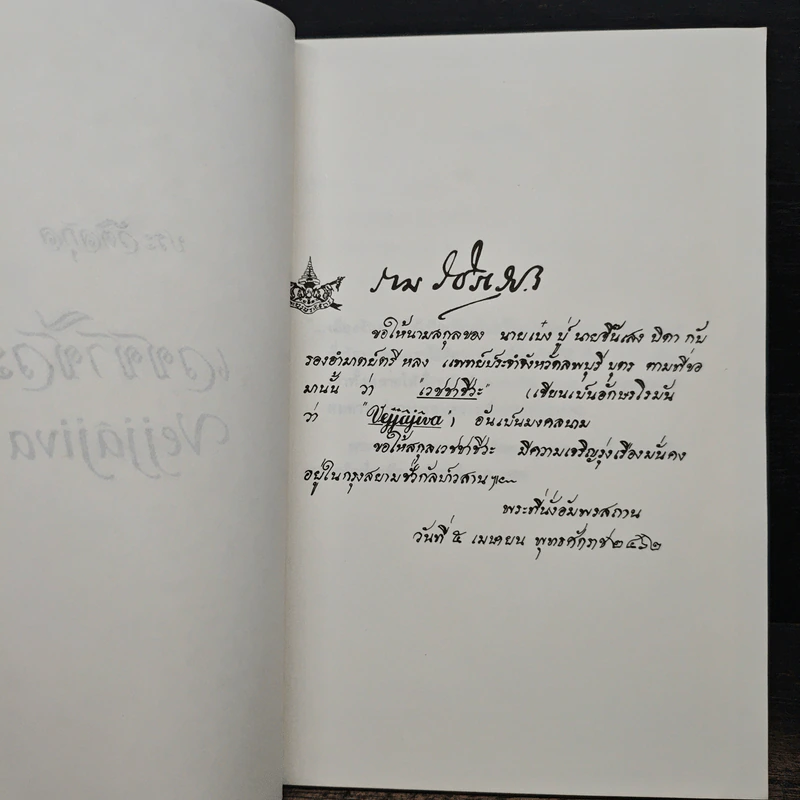 ราม วชิราวุธ ปร
ขอให้นามสกุลของ นายเป๋ง ปู่ นายจิ๊นแสง บิดา กับ
รองอำมาตย์ตรี หลง แพทย์ประจำจังหวัดลพบุรี บุตร ตามที่ขอ
มานั้น ว่า "เวชชาชีวะ" (เขียนเป็นอักษรโรมัน
ว่า "Vejjājīva") อันเป็นมงคลนาม
ขอให้สกุลเวชชาชีวะ มีความเจริญรุ่งเรืองมั่นคง
อยู่ในกรุงสยามชั่วกัลปาวสาน ๚ะ๛
พระที่นั่งอัมพรสถาน
วันที่ ๕ เมษายน พุทธศักราช ๒๔๖๒